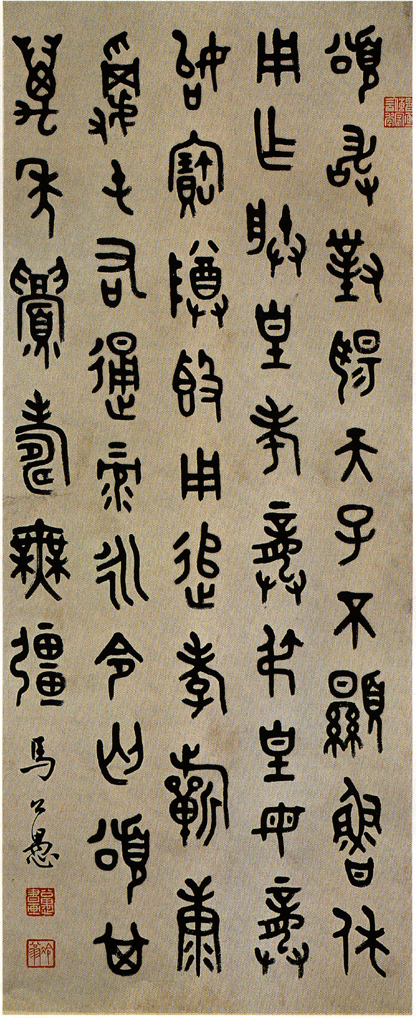 頌敢對揚天子不顯魯休
用作朕皇考龔叔皇母龔
始寶尊簋用追孝蘄康
屯右通彔永令頌其
萬年眉壽無彊
馬公愚
公愚書畫